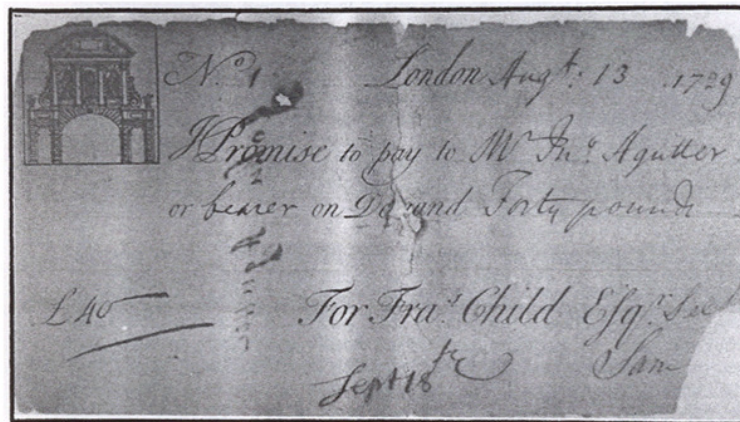 Nº 1. London Augᵗ: 13 1729
I Promise to pay to Mʳ Jnº Agutter
or bearer on Demand Forty pounds
£40 For Fraˢ Child Esqʳ
Sam
Sept 18